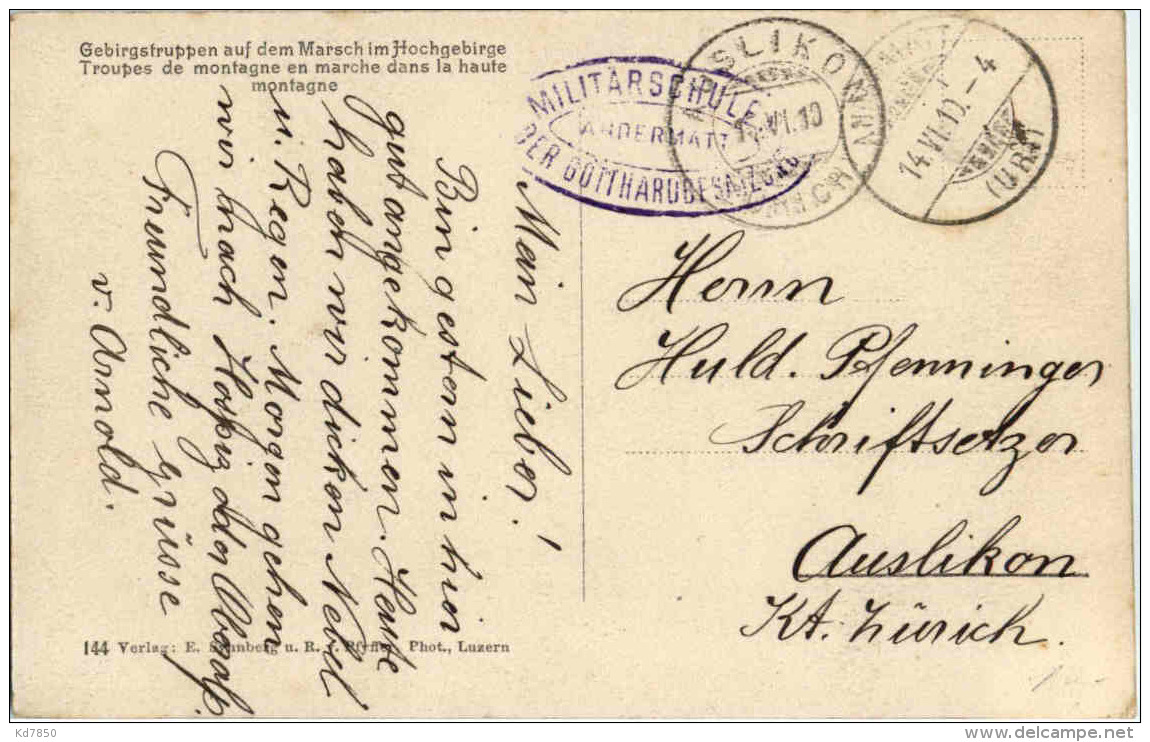 Gebirgstruppen auf dem Marsch im Hochgebirge
Troupes de montagne en marche dans la haute
montagne
MILITÄRSCHULE
ANDERMATT
DER GOTTHARDBESATZUNG
AUSLIKON
VI.10
(ZÜRICH)
ANDERMATT
14.VI.10.-4
(URI)
Mein Lieber!
Bin gestern in hier
gut angekommen. Heute
haben wir dicken Nebel
u. Regen. Morgen gehen
wir nach Hospiz oder Oberalp.
Freundliche grüsse
v. Arnold.
Herrn
Huld. Pfenninger
Schriftsetzer
Auslikon
Kt. Zürich.
144 Verlag: E. u. R. Phot., Luzern
Kd7850
delcampe.net